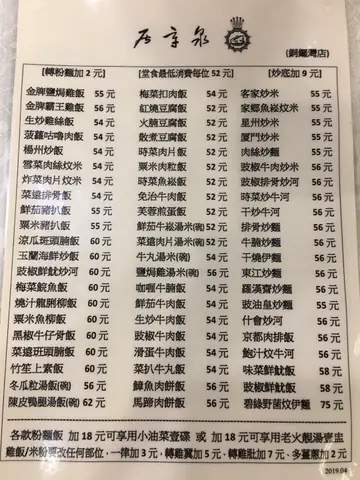 泉章居
(銅鑼灣店)
[轉粉麵加2元] [堂食最低消費每位52元] [炒底加9元]
金牌鹽焗雞飯 55元 梅菜扣肉飯 54元 客家炒米 55元
金牌霸王雞飯 56元 紅燒豆腐飯 52元 家鄉魚崧炆米 55元
生炒雞絲飯 54元 火腩豆腐飯 52元 星州炒米 55元
菠蘿咕嚕肉飯 54元 散煮豆腐飯 52元 廈門炒米 55元
楊州炒飯 54元 時菜肉片飯 52元 肉絲炒麵 55元
雪菜肉絲炆米 54元 粟米肉粒飯 52元 豉椒牛肉炒米 56元
炸菜肉片炆米 54元 時菜魚崧飯 52元 豉椒排骨炒河 56元
菜遠排骨飯 54元 免治牛肉飯 52元 時菜炒牛河 56元
鮮茄豬扒飯 55元 芙蓉煎蛋飯 52元 干炒牛河 56元
粟米豬扒飯 55元 鮮茄牛崧湯米(碗) 52元 排骨炒麵 56元
涼瓜斑頭腩飯 60元 菜遠肉片湯米(碗) 52元 牛腩炒麵 56元
玉蘭海鮮炒飯 60元 牛丸湯米(碗) 54元 干燒伊麵 56元
豉椒鮮魷炒河 60元 鹽焗雞湯米(碗) 56元 東江炒麵 56元
梅菜鯇魚飯 60元 咖喱牛腩飯 54元 羅漢齋炒麵 56元
燒汁龍脷柳飯 60元 鮮茄牛肉飯 54元 豉油皇炒麵 55元
粟米魚柳飯 60元 生炒牛肉飯 54元 什會炒河 56元
黑椒牛仔骨飯 60元 豉椒牛肉飯 54元 京都肉排飯 56元
菜遠斑頭腩飯 60元 滑蛋牛肉飯 54元 鮑汁炆牛河 56元
竹笙上素飯 60元 菜扒牛丸飯 54元 味菜鮮魷飯 58元
冬瓜粒湯飯(碗) 56元 鯪魚肉餅飯 56元 豉椒鮮魷飯 58元
陳皮鴨腿湯飯(碗) 62元 馬蹄肉餅飯 56元 碧綠野菌炆伊麵 75元
各款粉麵飯 加18元可享用小油菜壹碟 或 加18元可享用老火靚湯壹盅
雞飯/米粉要改任何部位，一律加3元，轉雞翼加5元，轉雞肶加7元、多薑蔥加2元
2019.04